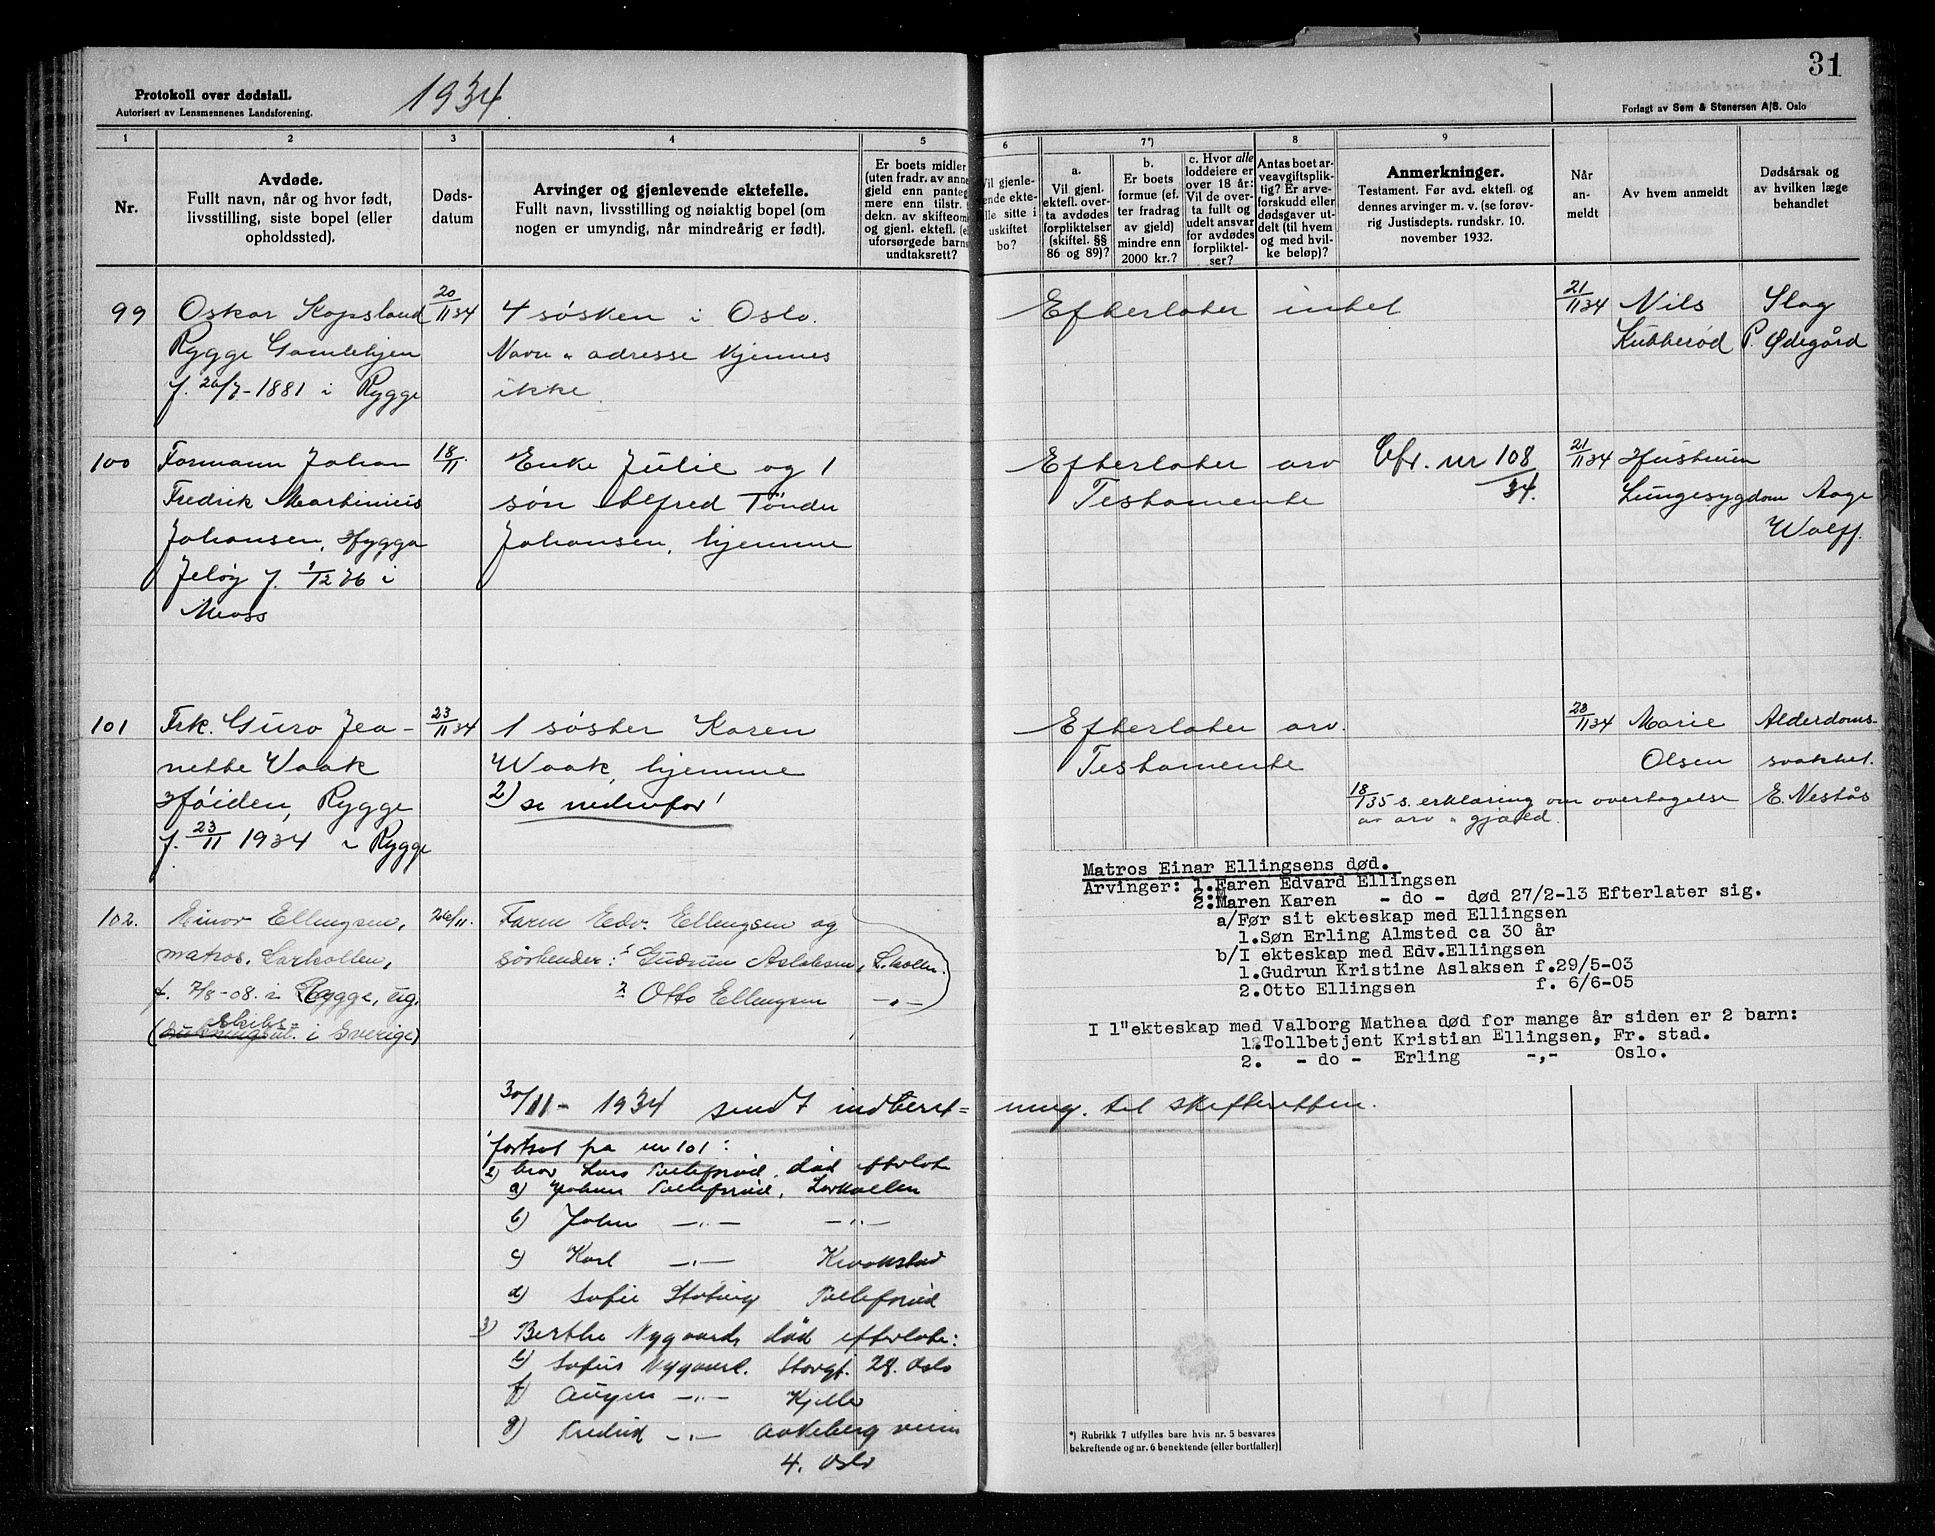 31
Protokoll over dødsfall.
Autorisert av Lensmennenes Landsforening.
1934.
Forlagt av Søm & Stenersen A/S. Oslo
1 2 3 4 5 6 7*) 8 9
Nr.
Avdøde.
Fullt navn, når og hvor født,
livsstilling, siste bopel (eller
opholdssted).
Døds-
datum
Arvinger og gjenlevende ektefelle.
Fullt navn, livsstilling og nøiaktig bopel (om
nogen er umyndig, når mindreårig er født).
Er boets midler
(uten fradr. av anne
gjeld enn panteg
mere enn tilstr. t
dekn. av skifteomk
og gjenl. ektefl. (el
uforsørgede barns
undtaksrett?
Vil gjenle-
ende ekte-
lle sitte i
uskiftet
bo?
a.
Vil gjenl.
ektefl. over-
ta avdødes
forpliktelser
(skiftel. §§
86 og 89)?
b.
Er boets
formue (ef-
ter fradrag
av gjeld)
mindre enn
2000 kr.?
c. Hvor alle
loddeiere er
over 18 år:
Vil de over-
ta fullt og
udelt ansvar
for avdødes
forpliktel-
ser?
Antas boet ar-
veavgiftsplik-
tig? Er arve-
forskudd eller
dødsgaver ut-
delt (til hvem
og med hvil-
ke beløp)?
Anmerkninger.
Testament. Før avd. ektefl. og
dennes arvinger m. v. (se forøv-
rig Justisdepts. rundskr. 10.
november 1932.
Når
an-
meldt
Av hvem anmeldt
Dødsårsak og
av hvilken læge
behandlet
99 Oskar Kopsland 20/11 34 4 søsken i Oslo. Efterlater intet 21/11 34 Nils Slag
Rygge Gamlehjem Navn & adresse kjennes Kubberød P. Ødegård
f. 26/7-1881 i Rygge ikke.
100 Formann Johan 18/11. Enke Julie og 1 Efterlater arv Cfr. nr 108/34. 21/11 34 Hustruen
Fredrik Martinius søn Alfred Tønder Testamente Lungesygdom Aage
Johansen, Hygga Johansen, hjemme Wolff.
Jeløy f. 1/12 76 i
Moss
101 Frk. Guro Jea- 23/11 34 1 søster Karen Efterlater arv. 23/11 34 Marie Alderdoms-
nette Waak Waak, hjemme Testamente Olsen svakhet.
Høiden, Rygge 2) se nedenfor! 18/1 35 s. erklæring om overtagelse E. Nestås
av arv & gjæld.
f. 23/11 1934 i Rygge
Matros Einar Ellingsens død.
Arvinger: 1. Faren Edvard Ellingsen
2. Maren Karen - do - død 27/2-13 Efterlater sig.
a/Før sit ekteskap med Ellingsen
1. Søn Erling Almsted ca 30 år
b/I ekteskap med Edv.Ellingsen
1. Gudrun Kristine Aslaksen f.29/5-03
2. Otto Ellingsen f. 6/6-05
I 1" ekteskap med Valborg Mathea død for mange år siden er 2 barn:
1. Tollbetjent Kristian Ellingsen, Fr. stad.
2. - do - Erling -,- Oslo.
102. Einar Ellingsen, 26/11. Faren Edv. Ellingsen og
matros, Larkollen, søskender: 1 Gudrun Aslaksen, L.kollen.
f. 7/8-08. i Rygge, ug. 2 Otto Ellingsen -"-
(skibs- i Sverige)
30/11 - 1934 sendt indberet= ning. til skifteretten.
fortsat fra nr 101:
2) bror Lars Tollefsrød, død efterlate
a) Johan Tollefsrød, Larkollen
b) John -"- -"-
c) Karl -"- Kvakstad
d) Sofie Tollefsrød
3) Berthe Nygaard, død efterlate:
e) Sofus Nygaard. Storgt. 28. Oslo
f) -"- Kjeller
g) Fredrik -"- veien
4. Oslo
*) Rubrikk 7 utfylles bare hvis nr. 5 besvares
bekreftende og nr. 6 benektende (eller bortfaller)